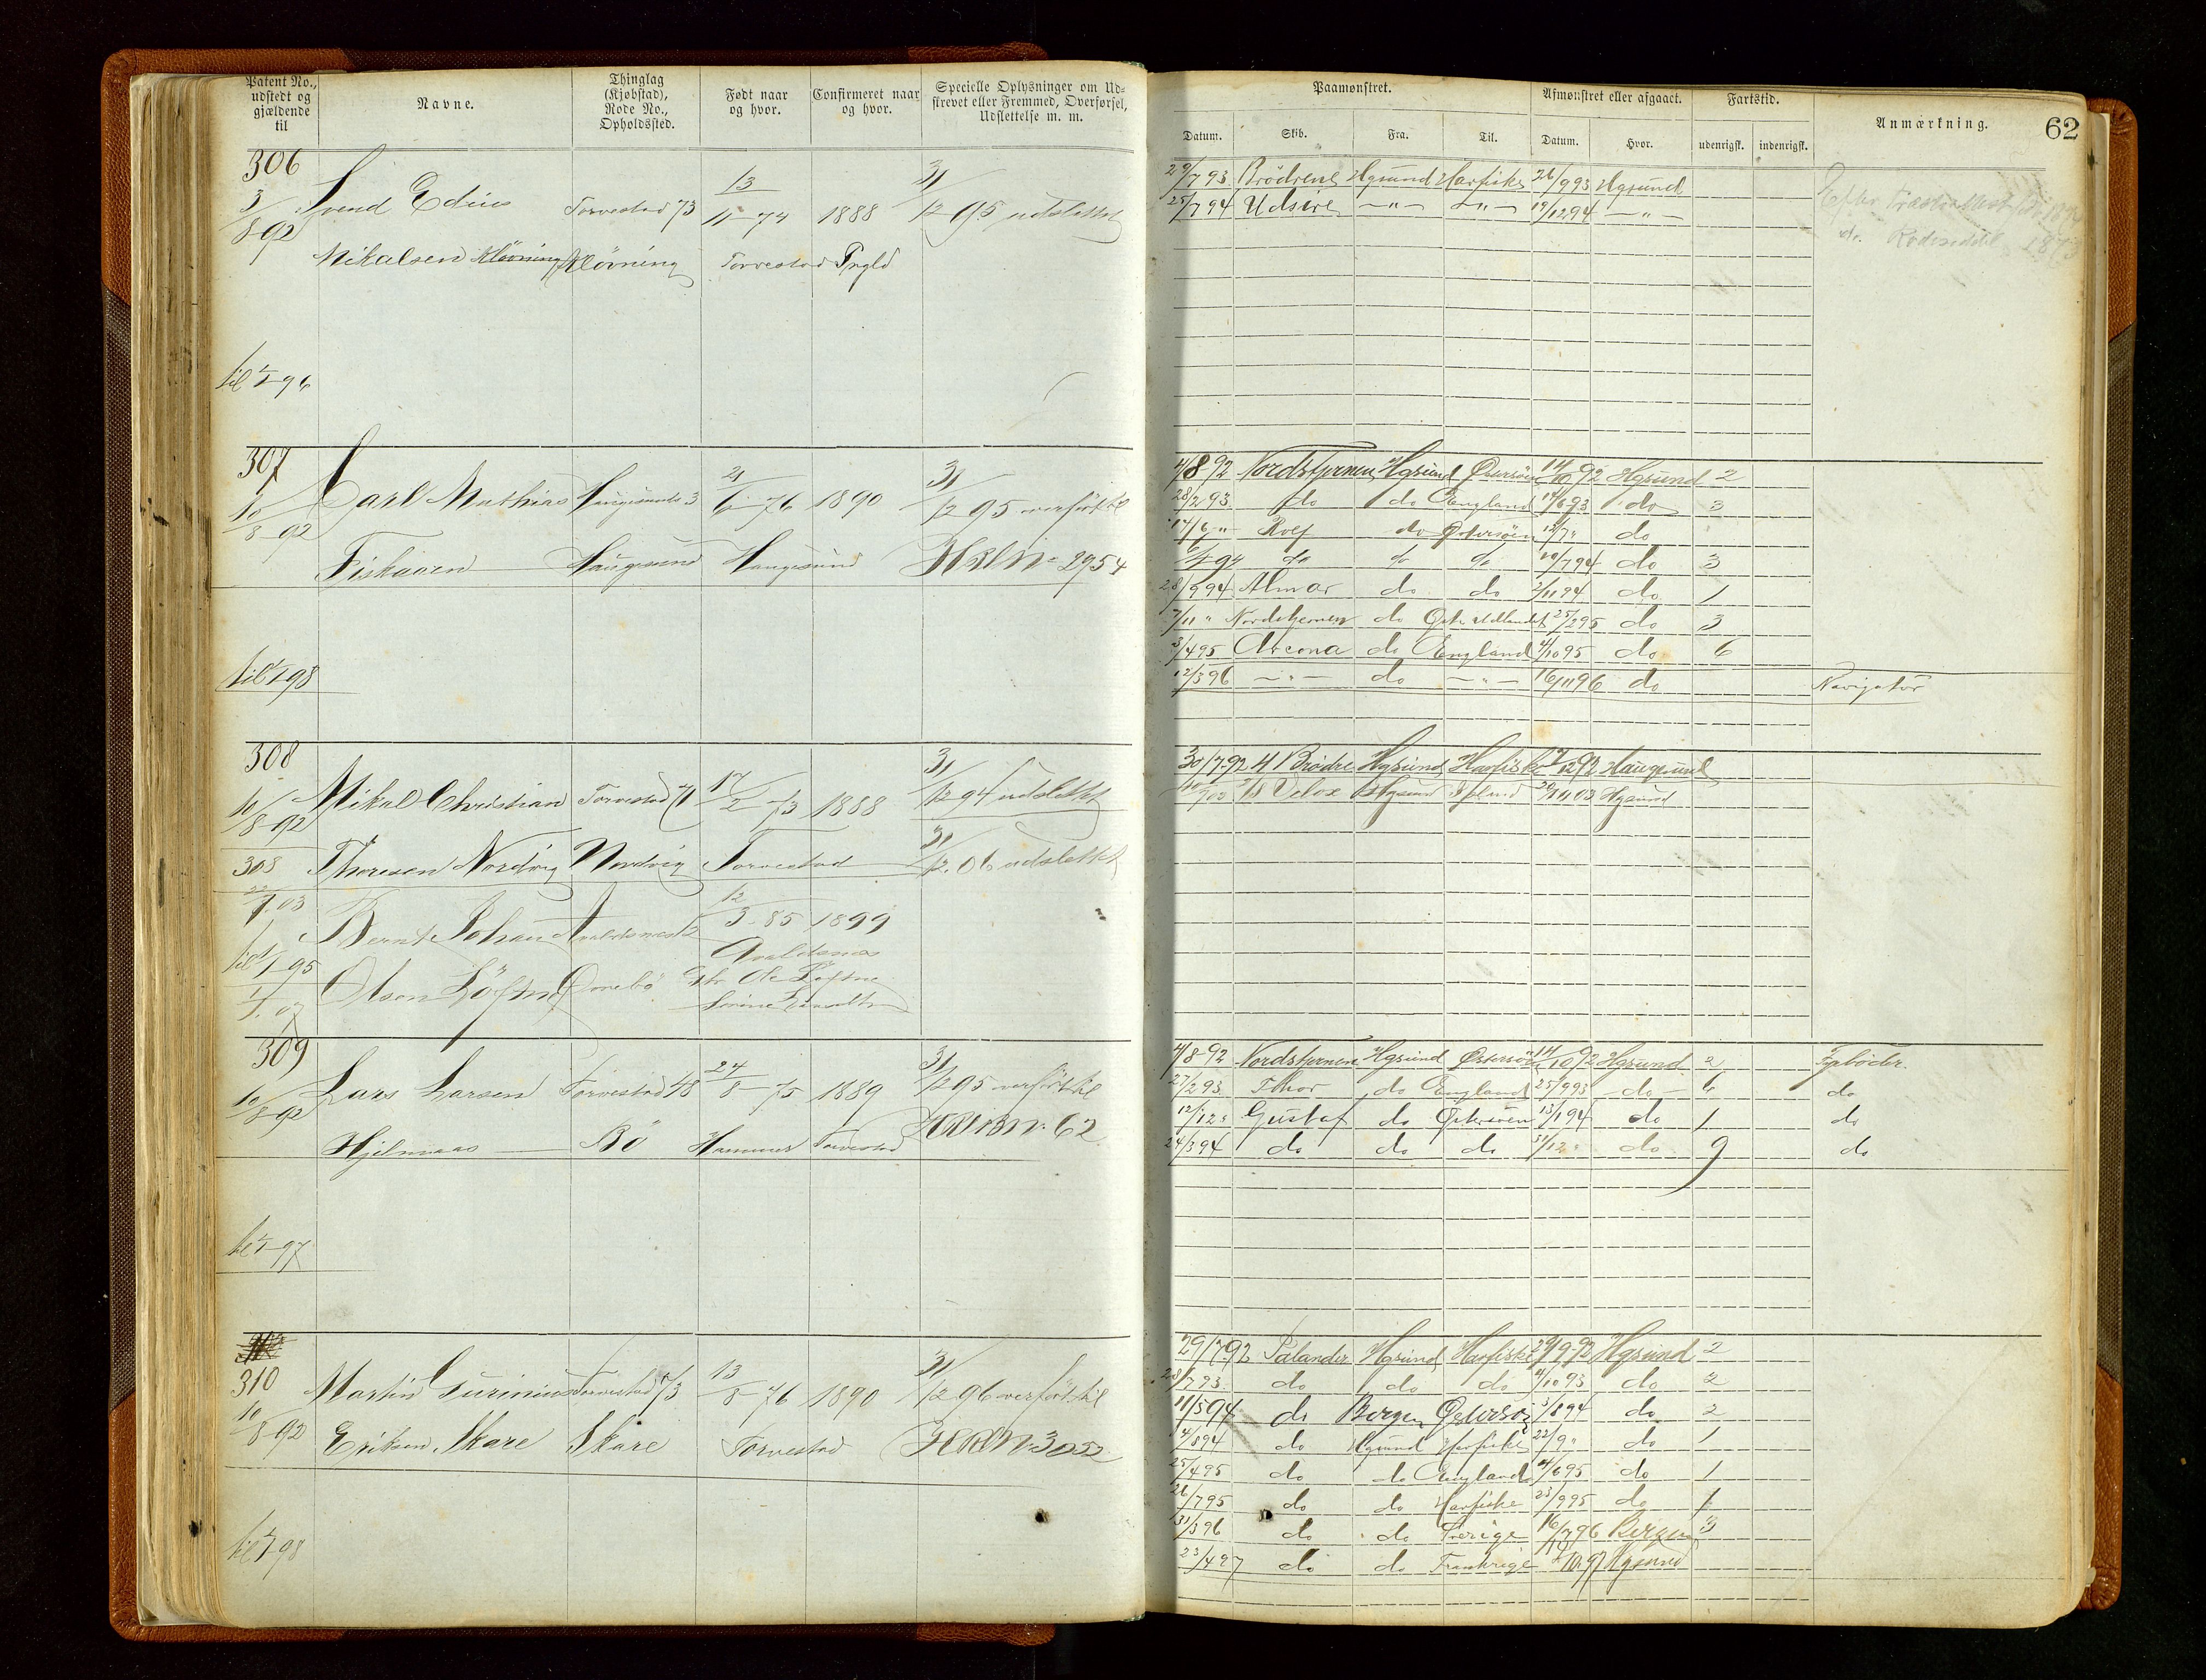 Patent No., udstedt og gjældende til
Navne.
Thinglag (Kjøbstad), Rode No., Opholdssted.
Født naar og hvor.
Confirmeret naar og hvor.
Specielle Oplysninger om Udskrevet eller Fremmed, Overførsel, Udslettelse m. m.
306
3/8 92 Svend Edius Torvestad 73 13/11 74 1888 31/12 95 udslettet
Mikalsen Kløvning Kløvning Torvestad Prgld
til 1/1 96
307
10/8 92 Carl Mathias Haugesunds 3 21/6 76 1890 31/12 95 overført til
Fiskaaen Haugesund Haugesund HRL No 2954
til 1/1 98
308
10/8 92 Mikal Christian Torvestad 71 17/2 73 1888 31/12 94 udslettet
308 Thoresen Nordvig Nordvig Torvestad 31/12.06 udslettet
22/7.03 Bernt Johan Avaldsnes 12 12/3 85 1899
til 1/1 95 Avaldsnes
Olsen
1/1.07
309
10/8 92 Lars Larsen Torvestad 48 24/8 75 1889 31/12 95 overført til
Hjelmaas Bö Hammer Torvestad No. 62
til 1/1 97
310
10/8 92 Martin Gurinius Torvestad 73 13/8 76 1890 31/12 96 overført til
Eriksen Skare Skare Torvestad HRL No. 3052
til 1/1 98
62
Paamønstret.
Afmønstret eller afgaaet.
Fartstid.
Anmærkning.
Datum. Skib. Fra. Til. Datum. Hvor. udenrigsk. indenrigsk.
29/7 93 Brödrene Hgsund Havfiske 26/9 93 Hgsund
25/7 94 Udsire -"- -"- 19/12 94 -"-
4/8 92 Nordstjernen Hgsund Østersøen 14/10 92 Hgsund 2
28/2 93 do do England 14/6 93 do 3
17/6 " Rolf do Østersøen 12/7 " do
6/4 94 do do do 10/7 94 do 3
28/9 94 Almar do do 2/11 94 do 1
7/11 " Nordstjernen do 25/2 95 do 3
3/4 95 Arcona do England 4/10 95 do 6
12/3 96 -"- do -"- 16/11 96 do Navigatør
30/7 92 4 Brødre Hgsund Havfiske 7/12 92 Haugesund
10/7 03 Velox Hgsund Island 03 Hgsund
4/8 92 Nordstjernen Hgsund Østersøen 14/10 92 Hgsund 2
27/2 93 Thor do England 25/9 93 do 6 do
12/12 " Gustaf do Østersøen 13/1 94 do 1 do
24/3 94 do do do 31/12 " do 9 do
29/7 92 Palander Hgsund Havfiske 29/9 92 Hgsund 2
28/7 93 do do do 4/10 93 do 2
11/5 94 do Bergen Østersø 3/8 94 do 2
14/8 94 do Hgsund Havfiske 22/9 " do 1
25/4 95 do do England 4/6 95 do 1
26/7 95 do do Havfiske 23/9 95 do 1
31/3 96 do do Sverige 16/7 96 Bergen 3
23/4 97 do do Frankrige /10.97 Hgsund